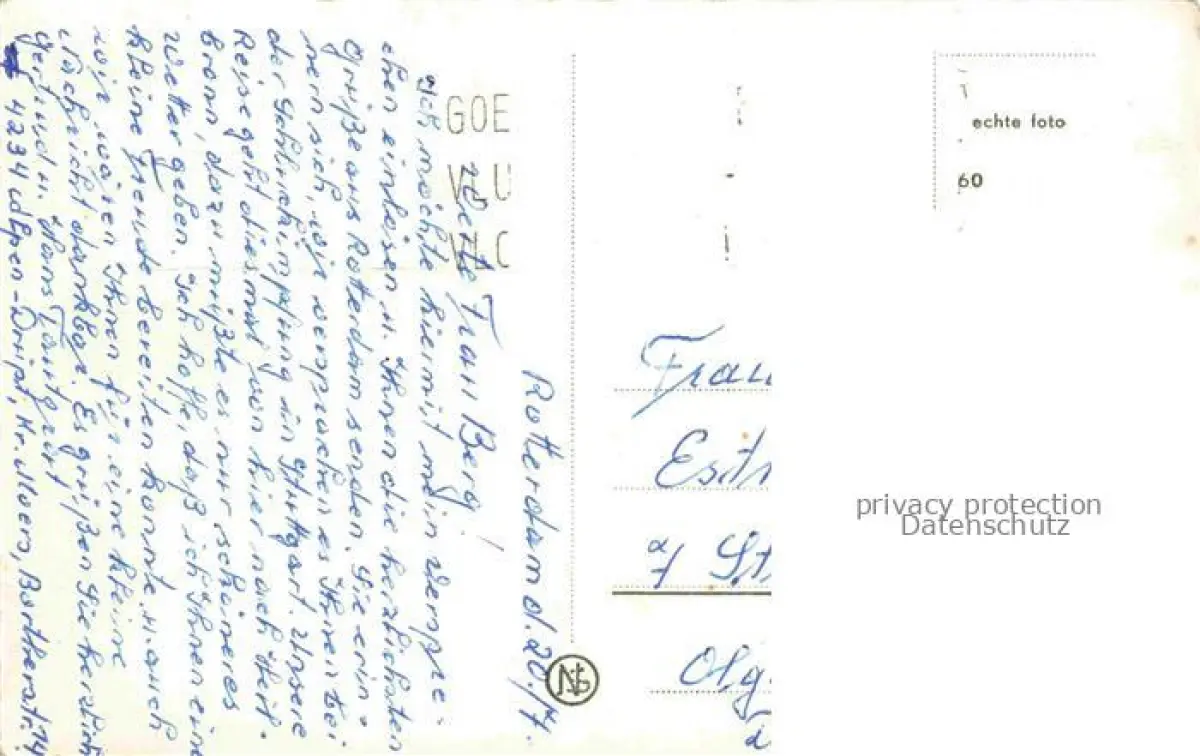 Rotterdam d. 20./7.
Werte Frau Berg!
Ich möchte hiermit mein Verspre-
chen einlösen u. Ihnen die herzlichsten
Grüße aus Rotterdam senden. Sie erin-
nern sich, wir versprachen es Ihnen bei
der Schluckimpfung in Stuttgart. Unsere
Reise geht diesmal von hier nach
dazu müßte es nur schöneres
Wetter geben. Ich hoffe, daß ich Ihnen eine
kleine Freude bereiten konnte u. auch
wir wären Ihnen für eine kleine
Nachricht dankbar. Es grüßen Sie herzlich
u. Hans
4234 Alpen-Drüpt, Kr. Moers, 14
GOE
VLU
echte foto
60
Frau
St
Olg
privacy protection
Datenschutz